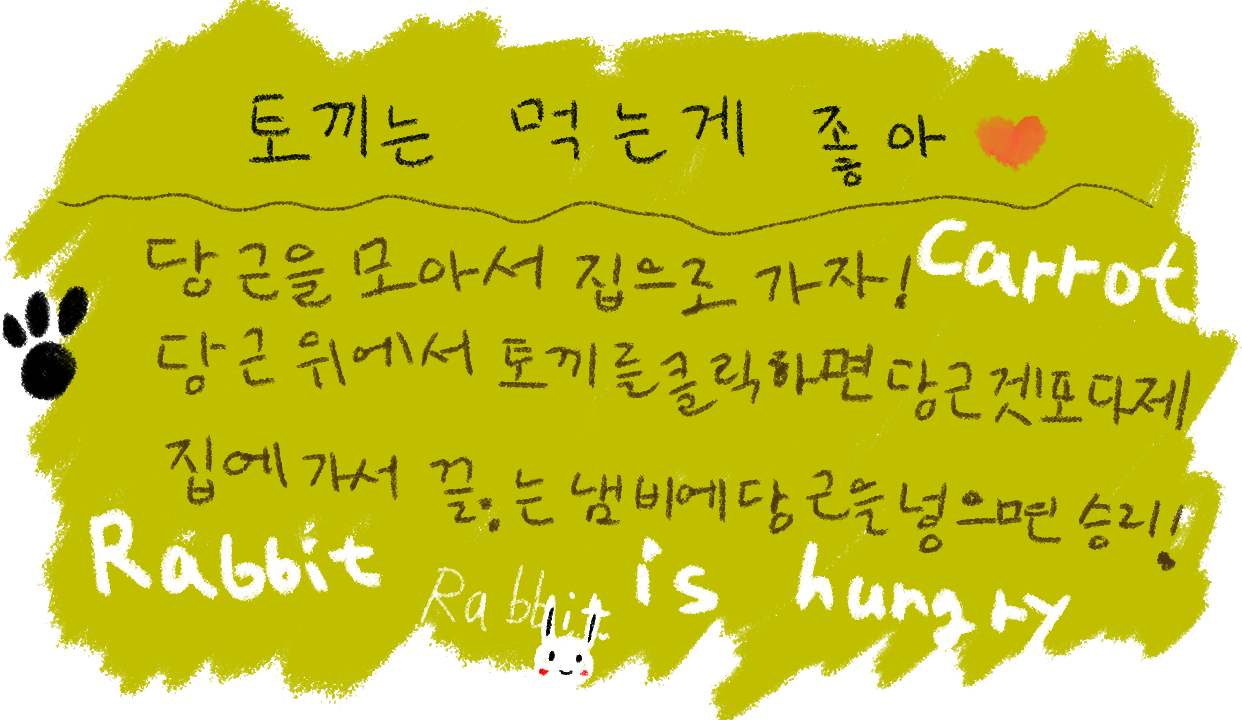 토끼는 먹는게 좋아
당근을 모아서 집으로 가자!
carrot
당근 위에서 토끼를클릭하면당근겟포다제
집에가서 끓는 냄비에당근을넣으면 승리!
Rabbit is hungry
Rabbit